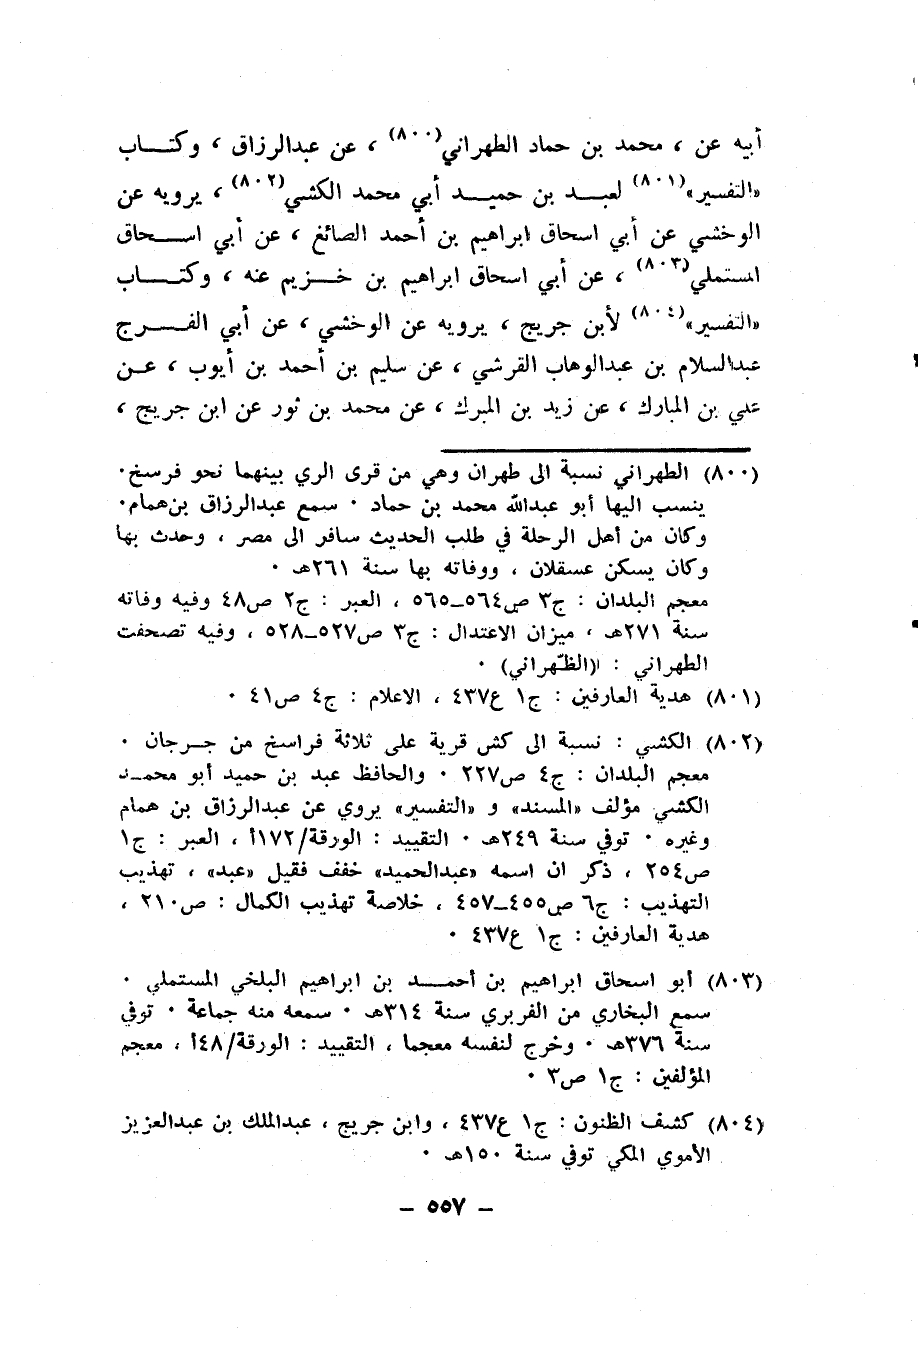 أبيه عن ، محمد بن حماد الطهراني(٨٠٠) ، عن عبدالرزاق ، وكتـــاب
«التفسير»(٨٠١) لعبـــد بن حميـــد أبي محمد الكشي(٨٠٢) ، يرويه عن
الوخشي عن أبي اسحاق ابراهيم بن أحمد الصائغ ، عن أبي اســـحاق
المستملي(٨٠٣) ، عن أبي اسحاق ابراهيم بن خـــزيم عنه ، وكتـــاب
«التفسير»(٨٠٤) لأبن جريج ، يرويه عن الوخشي ، عن أبي الفـــرج
عبدالسلام بن عبدالوهاب القرشي ، عن سليم بن أحمد بن أيوب ، عـن
علي بن المبارك ، عن زيد بن المبرك ، عن محمد بن ثور عن ابن جريج ،
(٨٠٠) الطهراني نسبة الى طهران وهي من قرى الري بينهما نحو فرسخ٠
ينسب اليها أبو عبدالله محمد بن حماد ٠ سمع عبدالرزاق بن همام٠
وكان من أهل الرحلة في طلب الحديث سافر الى مصر ، وحدث بها
وكان يسكن عسقلان ، ووفاته بها سنة ٢٦١هـ ٠
معجم البلدان : ج٣ ص٥٦٤–٥٦٥ ، العبر : ج٢ ص٤٨ وفيه وفاته
سنة ٢٧١هـ ، ميزان الاعتدال : ج٣ ص٥٢٧–٥٢٨ ، وفيه تصحفت
الطهراني : (الظّهراني) ٠
(٨٠١) هدية العارفين : ج١ ع٤٣٧ ، الاعلام : ج٤ ص٤١ ٠
(٨٠٢) الكشي : نسبة الى كش قرية على ثلاثة فراسخ من جـرجان ٠
معجم البلدان : ج٤ ص٢٢٧ ٠ والحافظ عبد بن حميد أبو محمـد
الكشي مؤلف «المسند» و «التفسير» يروي عن عبدالرزاق بن همام
وغيره ٠ توفي سنة ٢٤٩هـ ٠ التقييد : الورقة/١٧٢أ ، العبر : ج١
ص٢٥٤ ، ذكر ان اسمه «عبدالحميد» خفف فقيل «عبد» ، تهذيب
التهذيب : ج٦ ص٤٥٥–٤٥٧ ، خلاصة تهذيب الكمال : ص٢١٠ ،
هدية العارفين : ج١ ع٤٣٧ ٠
(٨٠٣) أبو اسحاق ابراهيم بن أحمـــد بن ابراهيم البلخي المستملي ٠
سمع البخاري من الفربري سنة ٣١٤هـ ٠ سمعه منه جماعة ٠ توفي
سنة ٣٧٦هـ ٠ وخرج لنفسه معجما ، التقييد : الورقة/٤٨أ ، معجم
المؤلفين : ج١ ص٣ ٠
(٨٠٤) كشف الظنون : ج١ ع٤٣٧ ، وابن جريج ، عبدالملك بن عبدالعزيز
الأموي المكي توفي سنة ١٥٠هـ ٠
– ٥٥٧ –